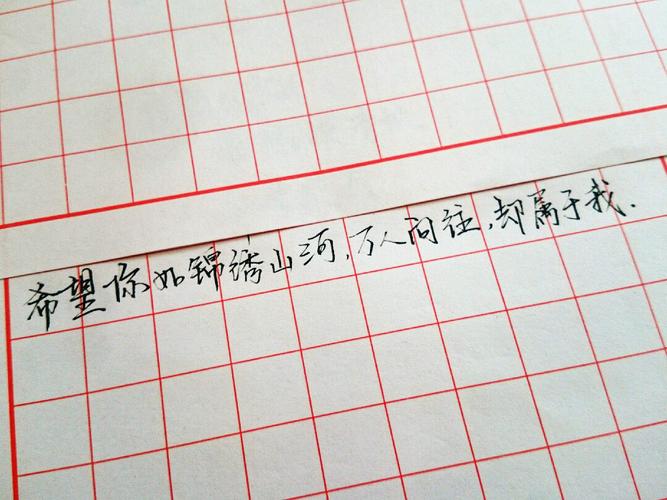 希望你如锦绣山河,万人向往,却属于我.